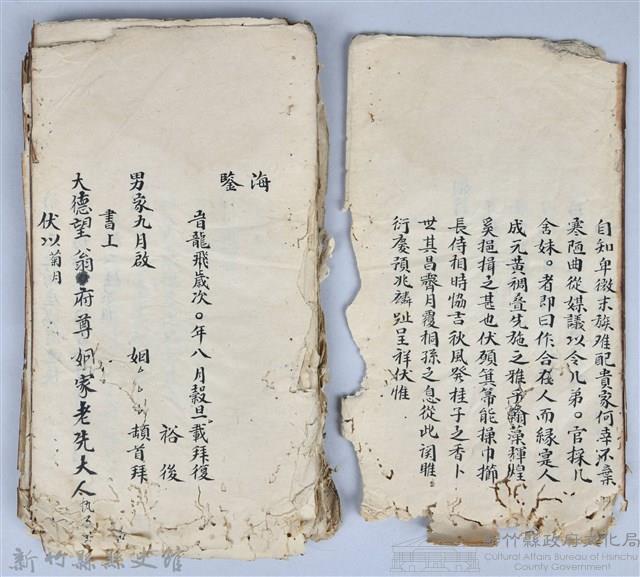 自知卑微末族难配貴家何幸不棄
寒陋曲從媒議以令几弟。官採几
舍妹。者即曰作合在人而緣寔人
成元黄裯叠先施之雅字翰藻輝煌
奚挹揖之甚也伏願箕箒能操巾櫛
長侍相時恊吉秋風発桂子之香卜
世其昌齊月覆桐孫之息從此関雎
衍慶預兆麟趾呈祥伏惟
海
鑒
旹龍飛歲次。年八月穀旦載拜復
裕後
男家九月啟
姻 頡首拜
書上
大德望 翁 府尊姻家老先大人
伏以菊月
新竹縣縣史館
新竹縣政府文化局
Cultural Affairs Bureau of Hsinchu
County Government